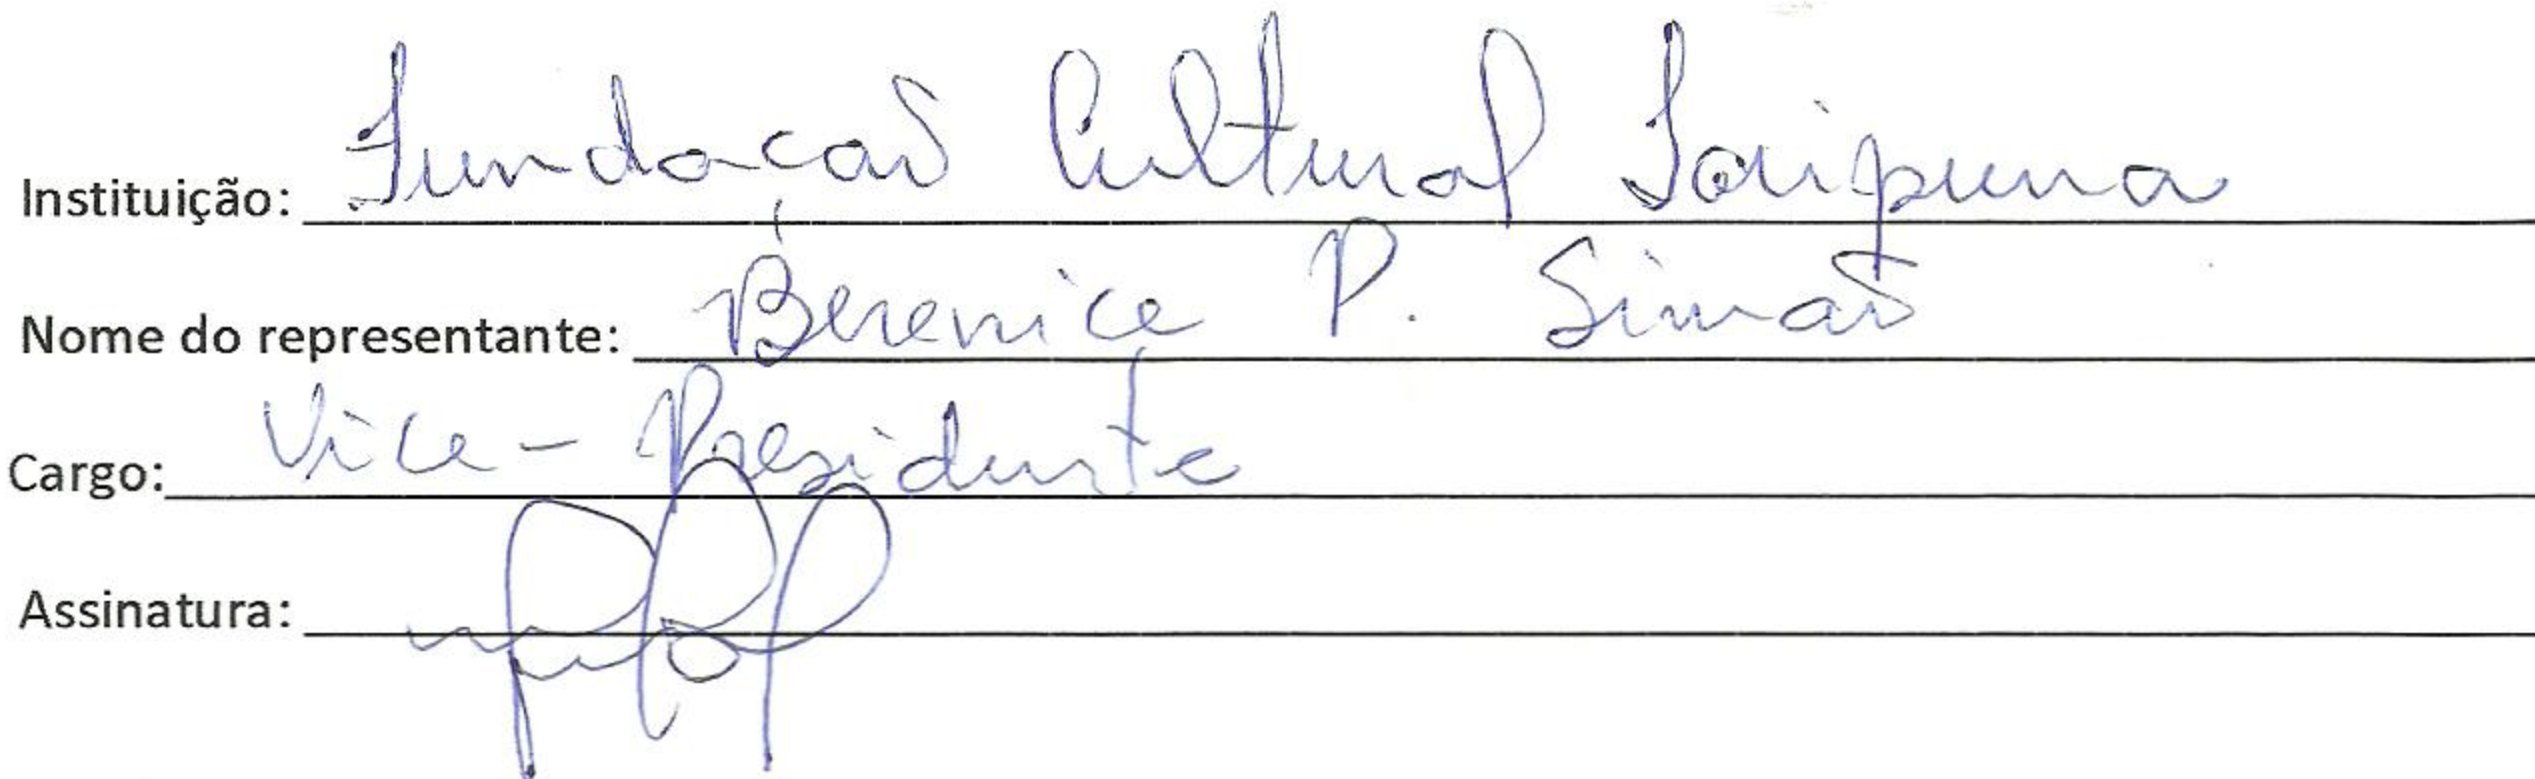 Instituição: Fundação Cultural Iaripuna
Nome do representante: Berenice P. Simão
Cargo: Vice-Presidente
Assinatura: